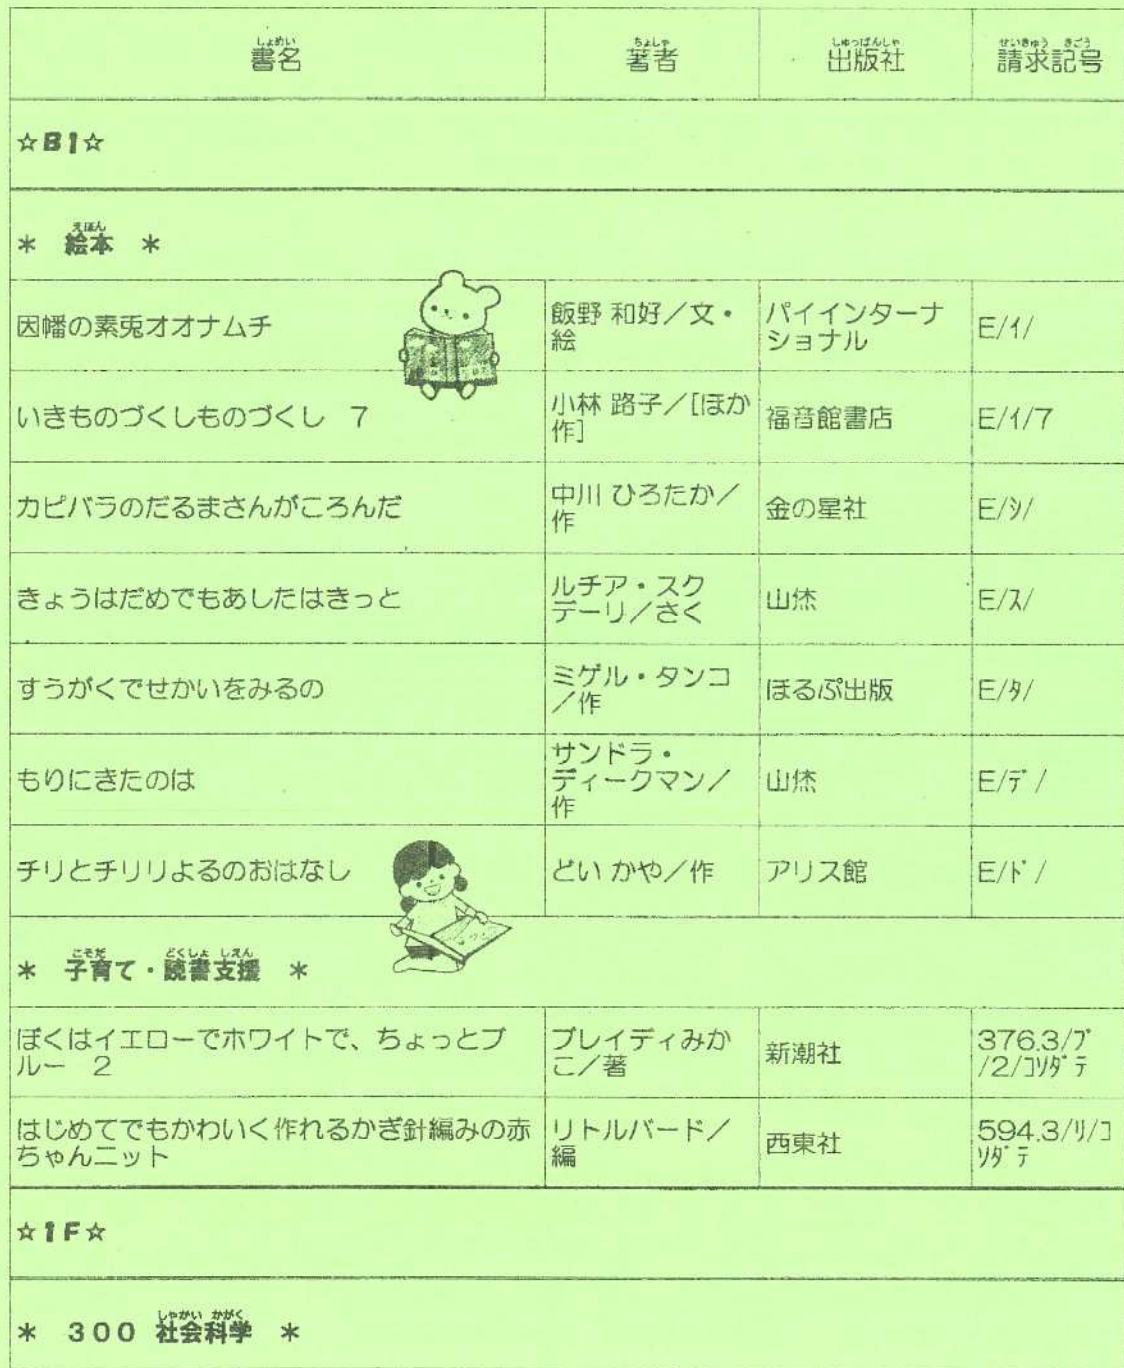 しょめい ちょしゃ しゅっぱんしゃ せいきゅう きごう
書名 著者 出版社 請求記号
☆B1☆
えほん
＊ 絵本 ＊
因幡の素兎オオナムチ
飯野 和好／文・
絵
パイインターナ
ショナル
E/ｲ/
いきものづくしものづくし 7
小林 路子／[ほか
作]
福音館書店
E/ｲ/7
カピバラのだるまさんがころんだ
中川 ひろたか／
作
金の星社
E/ｼ/
きょうはだめでもあしたはきっと
ルチア・スク
デーリ／さく
山烋
E/ｽ/
すうがくでせかいをみるの
ミゲル・タンコ
／作
ほるぷ出版
E/ﾀ/
もりにきたのは
サンドラ・
ディークマン／
作
山烋
E/ﾃﾞ/
チリとチリリよるのおはなし
どい かや／作
アリス館
E/ﾄﾞ/
こそだ どくしょ しえん
＊ 子育て・読書支援 ＊
ぼくはイエローでホワイトで、ちょっとブ
ルー 2
ブレイディみか
こ／著
新潮社
376.3/ﾌﾞ
/2/ｺｿﾀﾞﾃ
はじめてでもかわいく作れるかぎ針編みの赤
ちゃんニット
リトルバード／
編
西東社
594.3/ﾘ/ｺ
ｿﾀﾞﾃ
☆1F☆
しゃかい かがく
＊ 300 社会科学 ＊